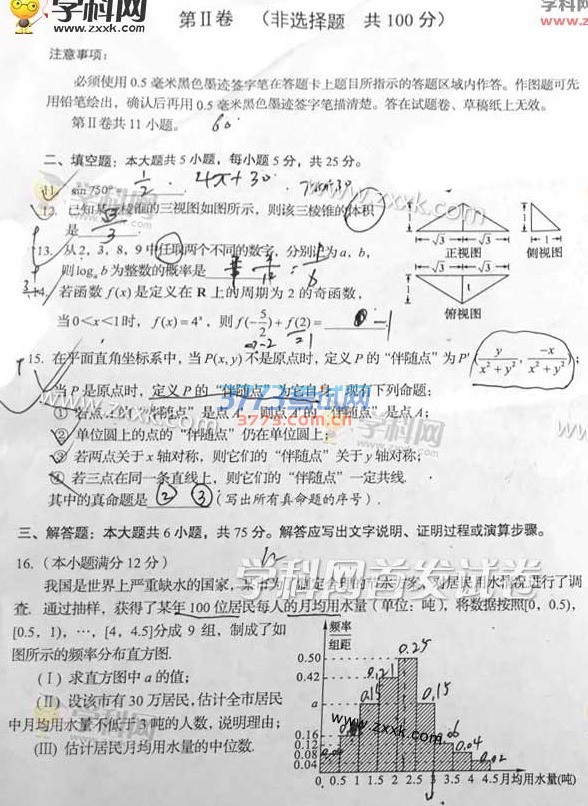 学科网
www.zxxk.com
学科网
www.zxxk.com
第Ⅱ卷 （非选择题 共100分）
注意事项：
必须使用0.5毫米黑色墨迹签字笔在答题卡上题目所指示的答题区域内作答。作图题可先
用铅笔绘出，确认后再用0.5毫米黑色墨迹签字笔描清楚。答在试题卷、草稿纸上无效。
第Ⅱ卷共11小题。
二、填空题：本大题共5小题，每小题5分，共25分。
11. sin750°= 1/2 . 4π+30
12. 已知某三棱锥的三视图如图所示，则该三棱锥的体积
是 √3/3
13. 从2，3，8，9中任取两个不同的数字，分别记为a，b，
则log_a b为整数的概率是 = 1/6
14. 若函数f(x)是定义在R上的周期为2的奇函数，
当0<x<1时，f(x)=4ˣ，则f(-5/2)+f(2)=
√3 √3 1 正视图
1 1 侧视图
√3 √3 1 俯视图
15. 在平面直角坐标系中，当P(x,y)不是原点时，定义P的“伴随点”为P′(y/(x²+y²), -x/(x²+y²))；
当P是原点时，定义P的“伴随点”为它自身，现有下列命题：
① 若点A的“伴随点”是点A′，则点A′的“伴随点”是点A；
② 单位圆上的点的“伴随点”仍在单位圆上；
③ 若两点关于x轴对称，则它们的“伴随点”关于y轴对称；
④ 若三点在同一条直线上，则它们的“伴随点”一定共线.
其中的真命题是 ② ③ （写出所有真命题的序号）.
3773考试网
3773.com.cn
学科网
三、解答题：本大题共6小题，共75分。解答应写出文字说明、证明过程或演算步骤。
16. （本小题满分12分）
学科网首发试卷
我国是世界上严重缺水的国家，某市为了制定合理的节水方案，对居民用水情况进行了调
查. 通过抽样，获得了某年100位居民每人的月均用水量（单位：吨），将数据按照[0，0.5)，
[0.5，1)，…，[4，4.5]分成9组，制成了如
图所示的频率分布直方图.
（Ⅰ）求直方图中a的值；
（Ⅱ）设该市有30万居民，估计全市居民
中月均用水量不低于3吨的人数，说明理由；
（Ⅲ）估计居民月均用水量的中位数.
频率
组距
0.50
0.42
a
0.16
0.12
0.08
0.04
0.25
0.15
0.15
0.04
0.02
0 0.5 1 1.5 2 2.5 3 3.5 4 4.5 月均用水量(吨)
www.zxxk.com
学科网
www.zxxk.com